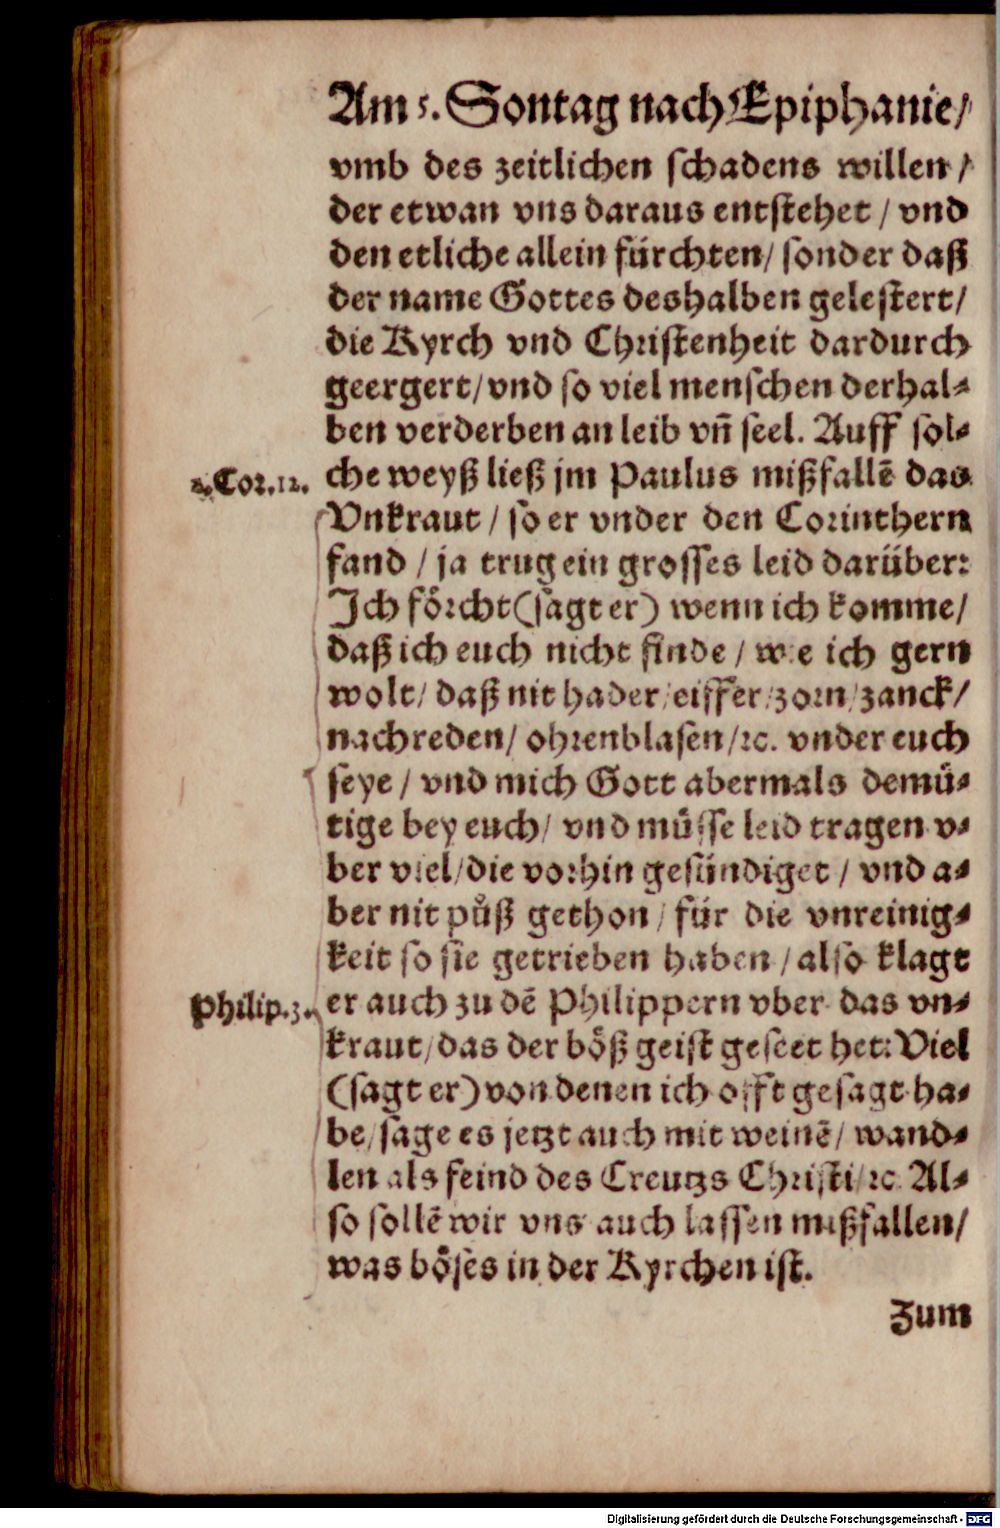 Am 5. Sontag nach Epiphanie/
vmb des zeitlichen schadens willen/
der etwan vns daraus entstehet / vnd
den etliche allein fürchten/ sonder daß
der name Gottes deshalben gelestert/
die Kyrch vnd Christenheit dardurch
geergert/ vnd so viel menschen derhal⸗
ben verderben an leib vñ seel. Auff sol⸗
2. Cor. 12.
che weyß ließ jm Paulus mißfallẽ das
Vnkraut / so er vnder den Corinthern
fand / ja trug ein grosses leid darüber:
Ich förcht (sagt er) wenn ich komme/
daß ich euch nicht finde / wie ich gern
wolt/ daß nit hader/ eiffer/ zorn/ zanck/
nachreden/ ohrenblasen/ ꝛc. vnder euch
seye / vnd mich Gott abermals demü⸗
tige bey euch/ vnd müsse leid tragen v⸗
ber viel/ die vorhin gesündiget / vnd a⸗
ber nit půß gethon / für die vnreinig⸗
keit so sie getrieben haben / also klagt
Philip. 3.
er auch zu dẽ Philippern vber das vn⸗
kraut/ das der böß geist geseet het: Viel
(sagt er) von denen ich offt gesagt ha⸗
be/ sage es jetzt auch mit weinẽ/ wand⸗
len als feind des Creutzs Christi/ ꝛc. Al⸗
so sollẽ wir vns auch lassen mißfallen/
was böses in der Kyrchen ist.
Zum
Digitalisierung gefördert durch die Deutsche Forschungsgemeinschaft - DFG